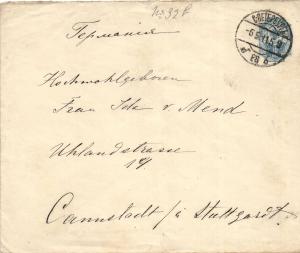 Германия
Hochwohlgeboren
Frau Ida v. Mend
Uhlandstrasse
14
Cannstadt b/ Stuttgardt.